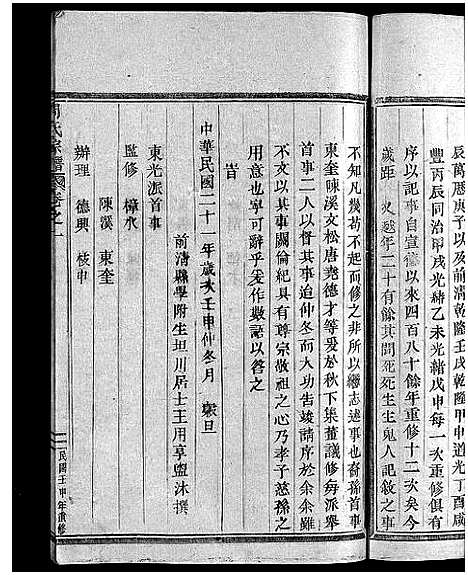 辰萬曆庚子以及我前清乾隆壬戌乾隆甲申道光丁酉咸
豐丙辰同治甲戌光緒乙未光緒戊申每一次重修俱有
序以記事自宣德以來四百八十餘年重修十二次矣今
歲距 火越年二十有餘其間死死生生鬼人記敘之事
不知凡幾苟不起而修之非所以繼志述事也裔孫首事
東奎陳溪文松唐堯德才等爰於秋下集蕫議修每派舉
首事二人以督其事迨仲冬而大功告竣請序於余余雖
不文以其事關倫紀具有尊宗敬祖之心乃孝子慈孫之
用意也寧可辭乎爰作數語以答之
旹
中華民國二十一年歲次壬申仲冬月 穀旦
前清縣學附生坦川居士王用享盥沐撰
東光派首事
監修 樟水
陳溪 東奎
辦理 德興 枝申
氏宗譜 卷之一
民國壬申年重修